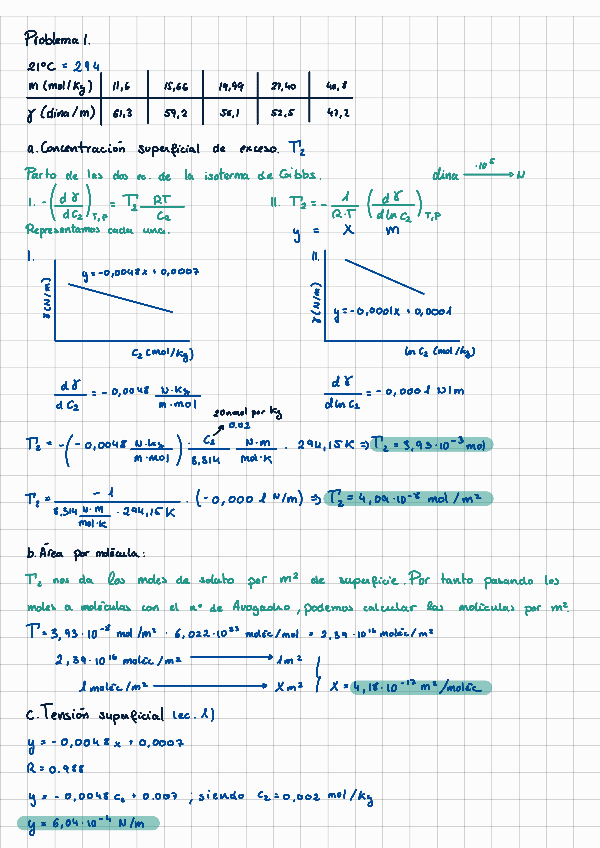 Problema 1.
21°C = 294
m (mol/Kg) 11,6 15,66 19,99 27,40 40,8
γ (dina/m) 61,3 59,2 55,1 52,5 47,2
a. Concentración superficial de exceso. Γ₂
Parto de las dos ec. de la isoterma de Gibbs.
dina ·10⁵ → N
I. -(dγ/dC₂)T,P = Γ₂ RT/C₂ II. Γ₂ = - 1/(R·T) (dγ/dln C₂)T,P
Representamos cada una. y = x m
I. II.
y = -0,0048x + 0,0007
γ (N/m) γ (N/m)
y = -0,0001x + 0,0001
C₂ (mol/Kg) ln C₂ (mol/Kg)
dγ/dC₂ = -0,0048 N·Kg/m·mol dγ/dln C₂ = -0,0001 N/m
20 mmol por Kg
0.02
Γ₂ = -(-0,0048 N·Kg/m·mol) · C₂/8,314 N·m/mol·K · 294,15K ⇒ Γ₂ = 3,93·10⁻³ mol
Γ₂ = -1/(8,314 N·m/mol·K · 294,15K) · (-0,0001 N/m) ⇒ Γ₂ = 4,09·10⁻⁸ mol/m²
b. Área por molécula:
Γ₂ nos da los moles de soluto por m² de superficie. Por tanto pasando los
moles a moléculas con el nº de Avogadro, podemos calcular las moléculas por m².
Γ = 3,93·10⁻⁸ mol/m² · 6,022·10²³ moléc/mol = 2,39·10¹⁶ moléc/m²
2,39·10¹⁶ moléc/m² → 1m²
1 moléc/m² → X m² X = 4,18·10⁻¹⁷ m²/moléc
c. Tensión superficial (ec. 1)
y = -0,0048x + 0,0007
R = 0.988
y = -0,0048 C₂ + 0.007 ; siendo C₂ = 0,002 mol/Kg
y = 6,04·10⁻⁴ N/m